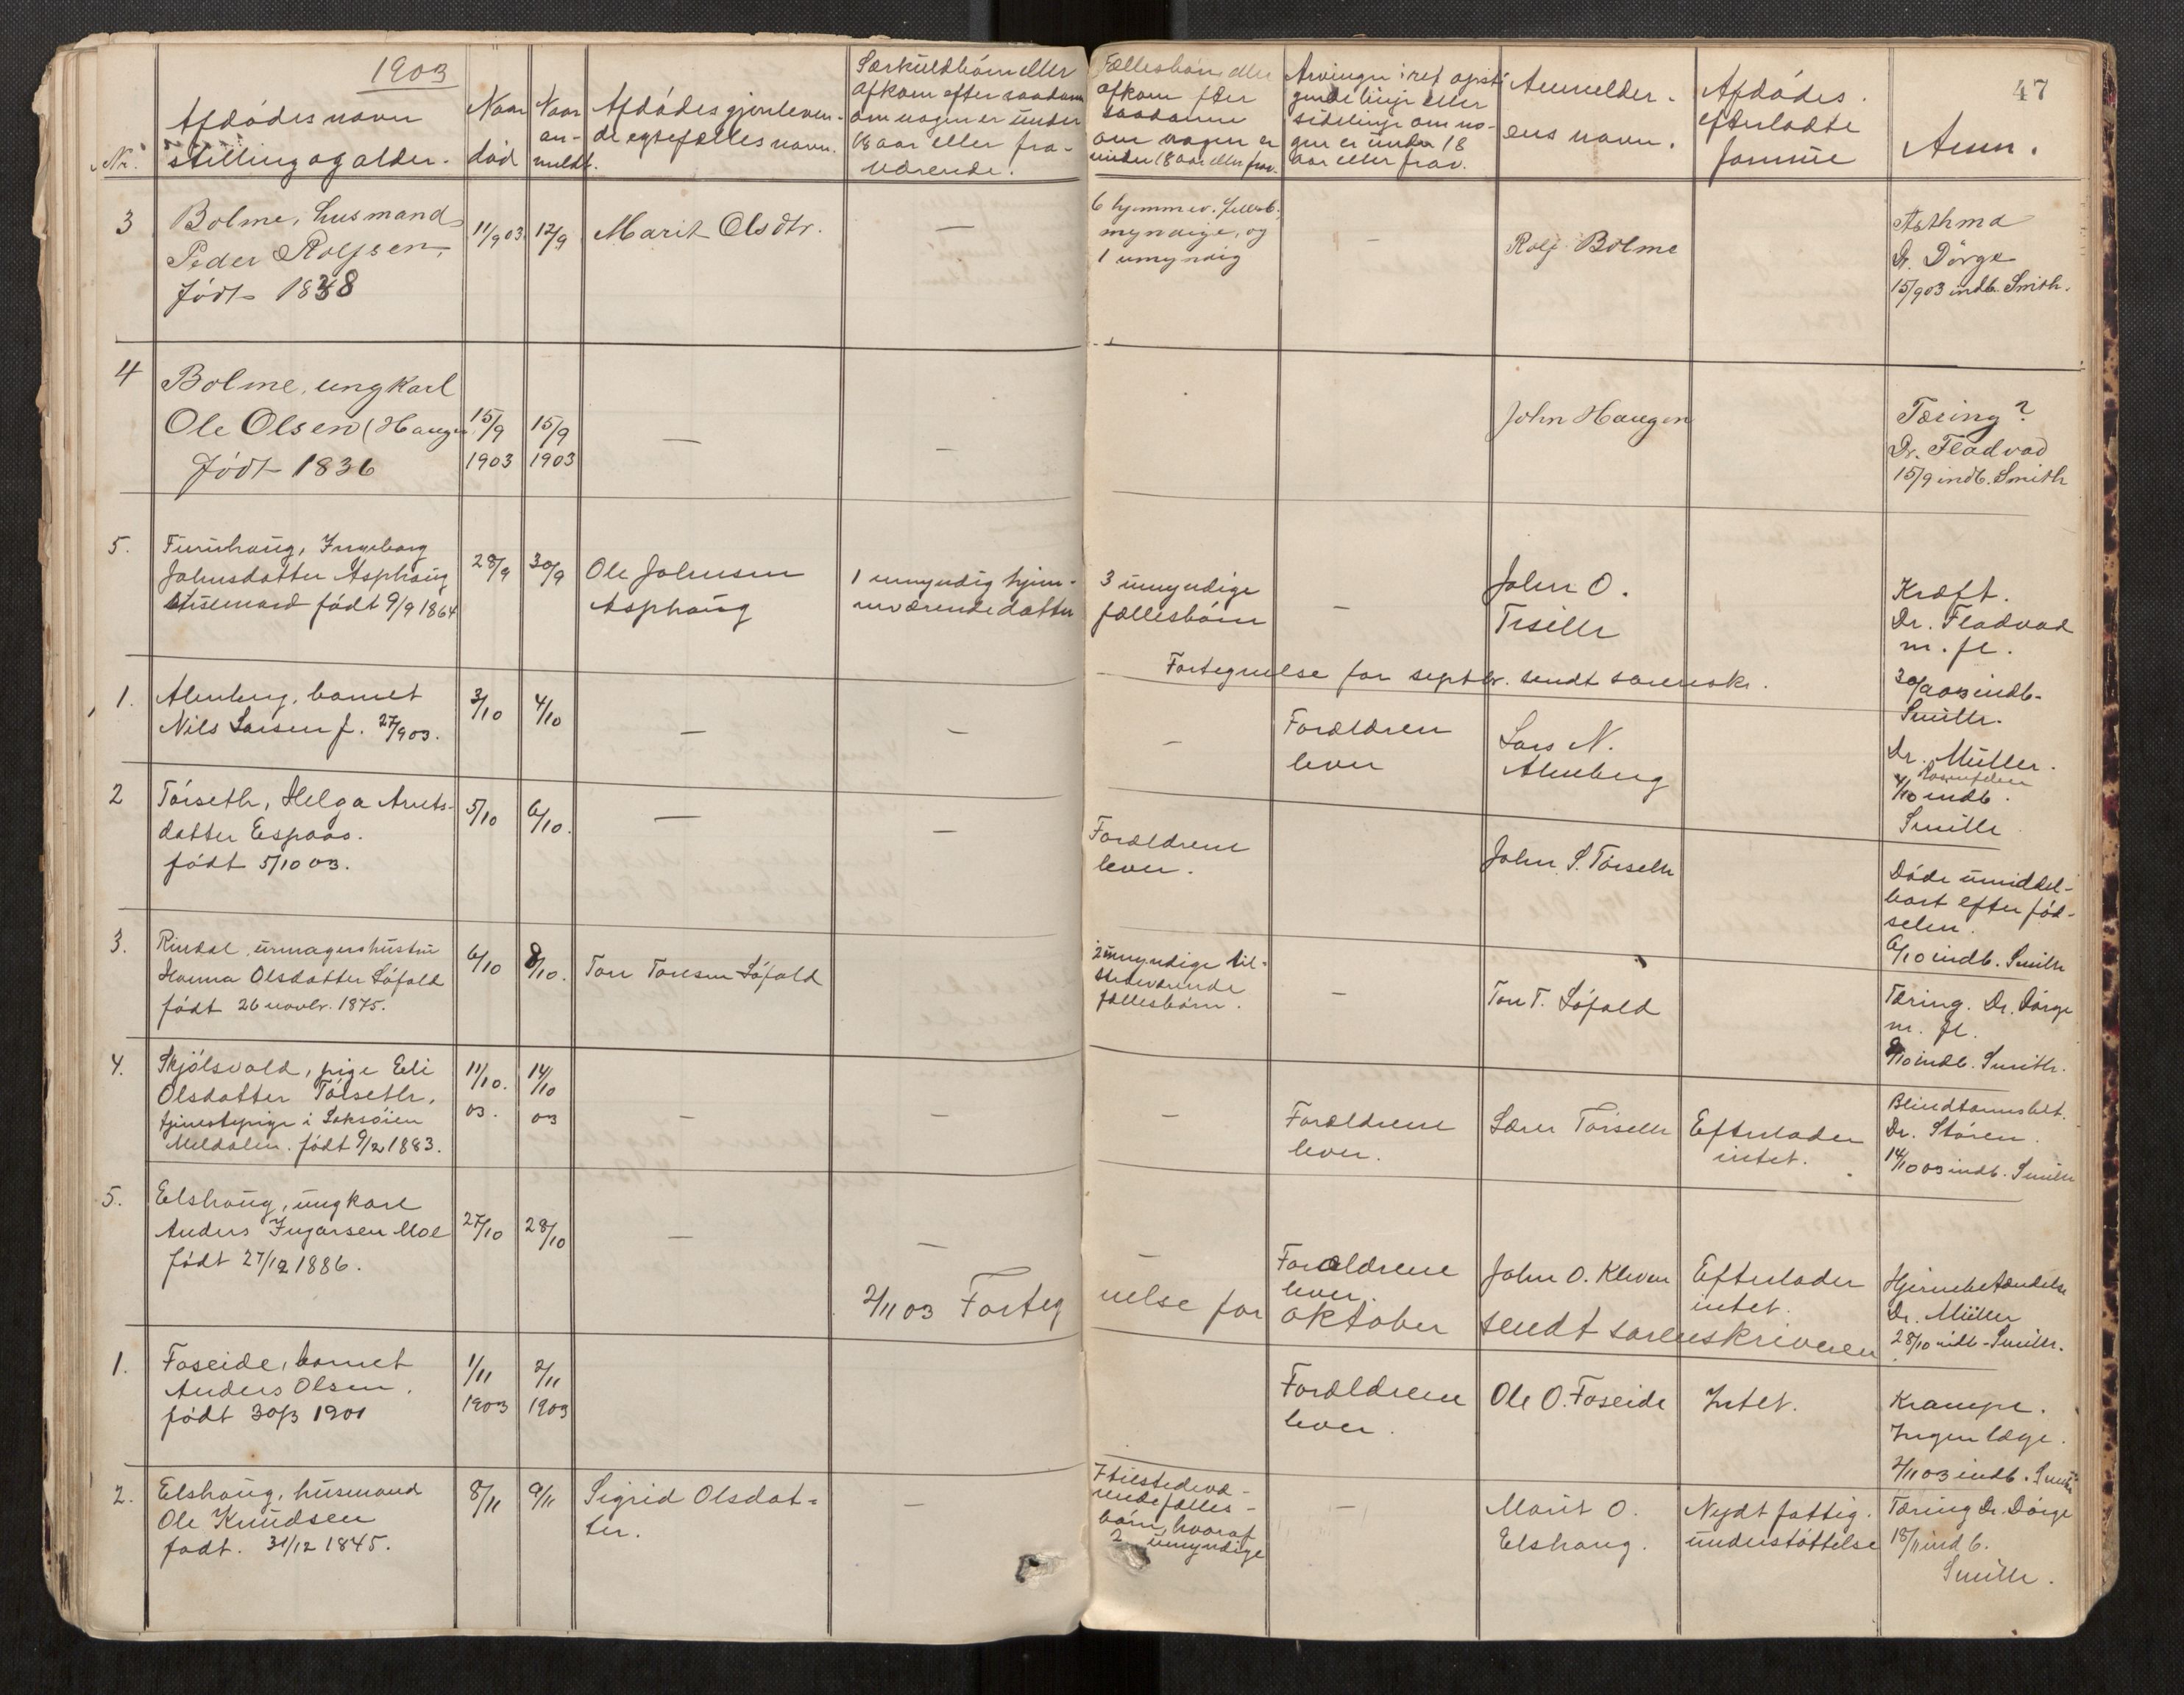 1903
47
Nr.
Afdödes navn
stilling og alder.
Naar
död
Naar
an-
meldt.
Afdödes gjenleven-
de egtefælles navn.
Særkuldbörn eller
afkom efter saadann
om nogen er under
18 aar eller fra-
værende.
Fællesbörn eller
afkom efter
saadanne
om nogen er
under 18 aar eller frav.
Arvinger i ret opsti-
gende linje eller
sidelinje om no-
gen er under 18
aar eller frav.
Anmelder-
ens navn.
Afdödes
efterladte
formue
Anm.
3
Bolme, husmand
Peder Rolfsen,
födt 1838
11/9 03.
12/9
Marit Olsdtr.
—
6 hjemmev. fellesb.
myndige, og
1 umyndig
—
Rolf Bolme
Asthma
Dr. Dörge
15/9 03 indb. Smith.
4
Bolme, ungkarl
Ole Olsen (Haugen
födt 1836
15/9
1903
15/9
1903
—
—
John Haugen
Tæring?
Dr. Fladvad
15/9 indb. Smith
5.
Furuhaug, Ingeborg
Johnsdatter Asphaug
födt 9/9 1864
28/9
30/9
Ole Johnsen
Asphaug
1 umyndig hjem-
meværende datter
3 umyndige
fællesbörn
—
John O.
Træft.
Dr. Fladvad
m. fl.
30/9 03 indb.
Smith.
Fortegnelse for septbr. sendt sorensk.
1.
Almberg, barnet
Nils Larsen f. 27/9 03.
3/10
4/10
—
—
—
Forældren
lever
Lars N.
Almberg
Dr. Müller.
4/10 indb.
Smith
2
Törseth, Helga Arnts-
datter Espaas.
födt 5/10 03.
5/10
6/10.
—
—
Forældrene
lever.
John S. Törseth
Döde umiddel-
bart efter föd-
selen.
6/10 indb. Smith
3.
Rindal, urmagerhustru
Hanna Olsdatter Löfald
födt 26 novbr. 1875.
6/10
8/10.
Tore Toresen Löfald
2 umyndige til-
stedeværende
fællesbörn.
—
Tore T. Löfald
Tæring. Dr. Dörge
m. fl.
8/10 indb. Smith.
4.
Skjölsvold, pige Eli
Olsdatter Törseth,
tjenestepige i Löksöien
Meldalen. födt 9/2 1883.
11/10.
03.
14/10
03
—
—
—
Forældrene
lever.
Lærer Törseth
Efterlader
intet.
Blindtarmsbet.
Dr. Stören.
14/10 03 indb. Smith
5.
Elshaug, ungkarl
Anders Ingarsen Moe
födt 27/12 1886.
27/10
28/10
—
—
—
Forældrene
lever.
John O. Kleven
Efterlader
intet.
Hjernebetændelse
Dr. Müller
28/10 indb. Smith.
2/11 03 Forteg
nelse for oktober sendt sorenskriveren
1.
Foseide, barnet
Anders Olsen.
födt 30/3 1901
1/11
1903
2/11
1903
Forældrene
lever.
Ole O. Foseide
Intet.
Krampe.
Ingen læge.
2/11 03 indb. Smith
2.
Elshaug, husmand
Ole Knudsen
födt. 31/12 1845.
8/11
9/11
Sigrid Olsdat-
ter.
—
7 tilstedevæ-
rende fælles-
börn, hvoraf
2 umyndige
—
Marit O.
Elshaug.
Nydt fattig.
understöttelse
Tæring Dr. Dörge
18/11 indb.
Smith.